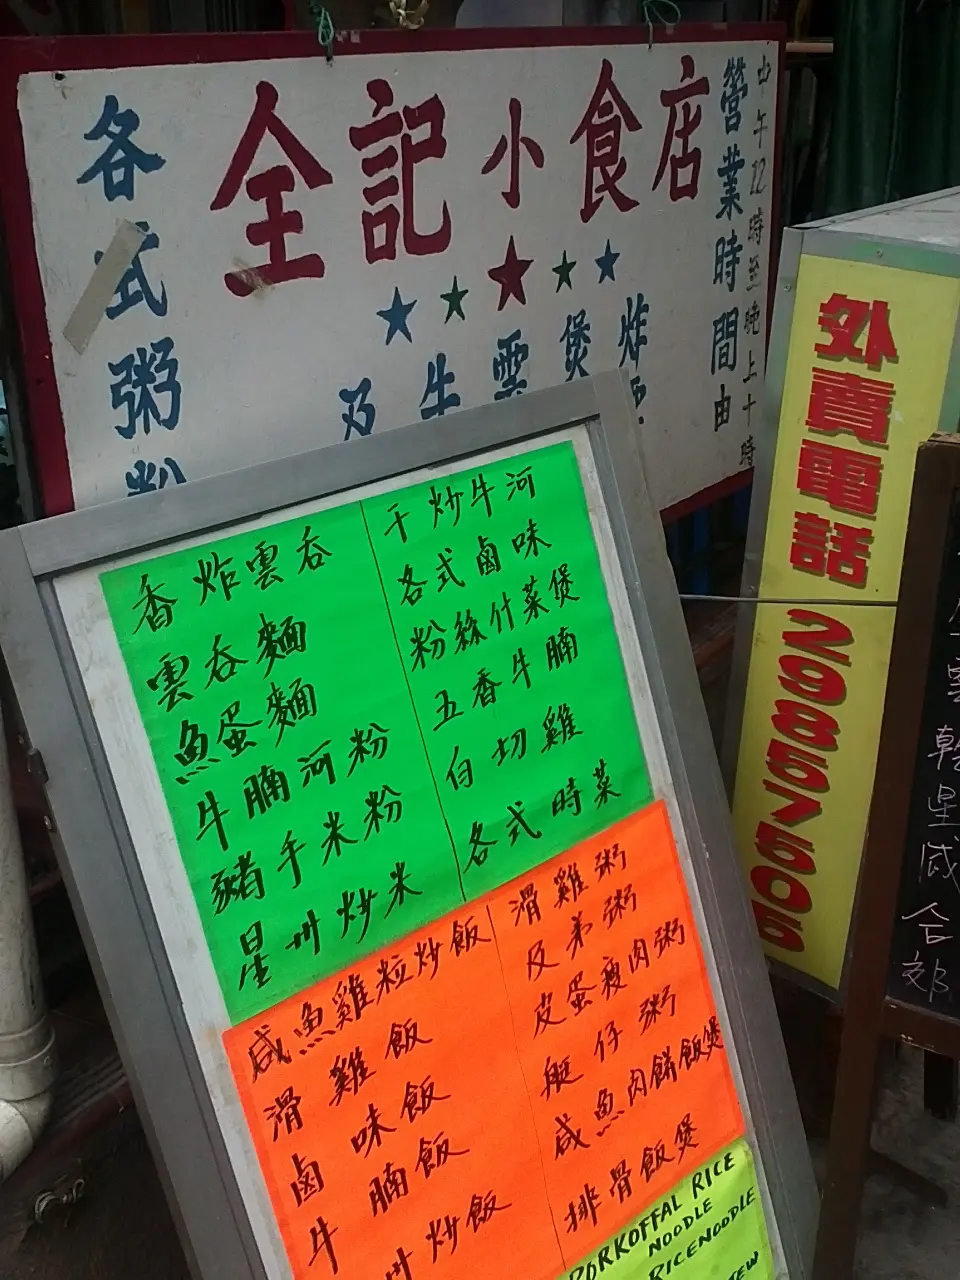 全記小食店
各式粥粉
及牛雲煲炸
營業時間由
中午12時至晚上十時
外賣電話 29857505
香炸雲吞
雲吞麵
魚蛋麵
牛腩河粉
豬手米粉
星州炒米
干炒牛河
各式鹵味
粉絲什菜煲
五香牛腩
白切雞
各式時菜
咸魚雞粒炒飯
滑雞飯
鹵味飯
牛腩飯
州炒飯
滑雞粥
及弟粥
皮蛋瘦肉粥
艇仔粥
咸魚肉餅飯煲
排骨飯煲
PORKOFFAL RICE
NOODLE
RICENOODLE
星
咸
合
郊